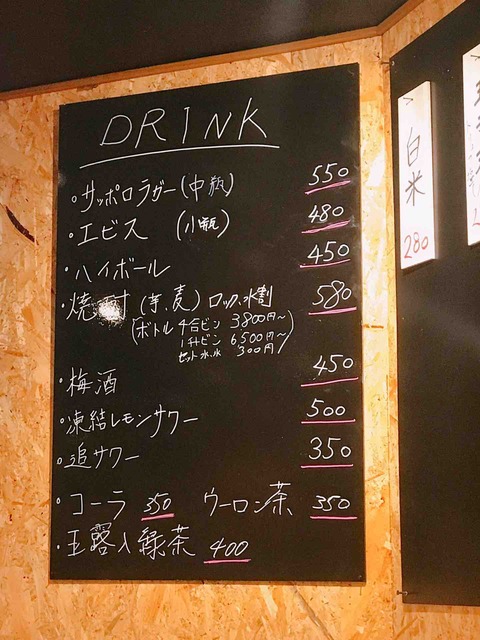 DRINK
・サッポロラガー(中瓶) 550
・エビス (小瓶) 480
・ハイボール 450
・焼 (芋、麦) ロック、水割 580
(ボトル 4合ビン 3,800円〜
1升ビン 6,500円〜
セット氷、水 300円)
・梅酒 450
・凍結レモンサワー 500
・追サワー 350
・コーラ 350 ウーロン茶 350
・玉露入緑茶 400
白米
280